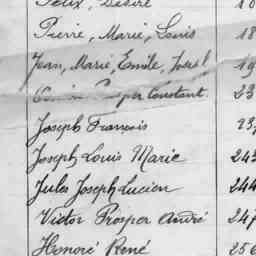 Félix, Désiré
Pierre, Marie, Louis 18
Jean, Marie, Emile, Joseph 19
Prosper Constant. 23
Joseph François 23
Joseph Louis Marie 243
Jules Joseph Lucien 244
Victor Prosper André 247
Honoré René 256